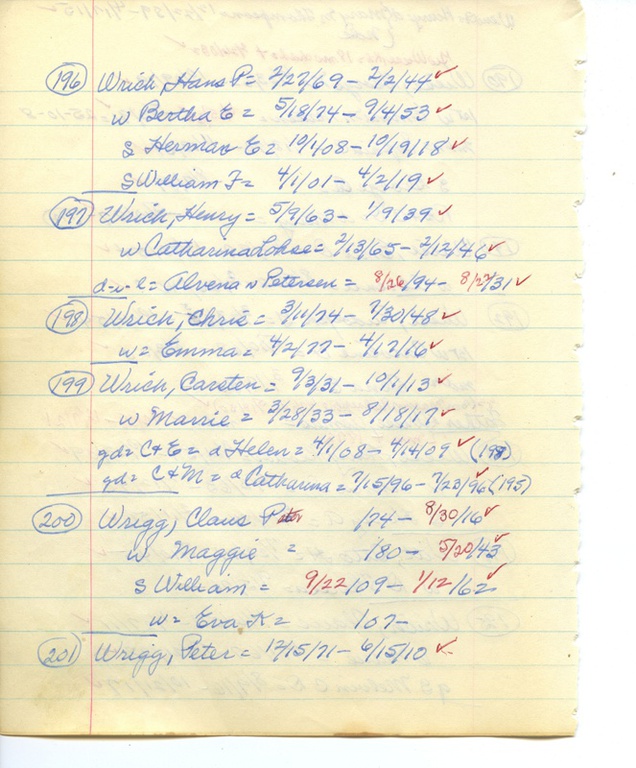 (196) Wrich, Hans P = 2/27/69 - 2/2/44 ✓
w Bertha E = 5/18/74 - 9/4/53 ✓
s Herman E = 10/1/08 - 10/19/18 ✓
s William F = 4/1/01 - 4/2/19 ✓
(197) Wrich, Henry = 5/9/63 - 1/9/39 ✓
w Catharina Lohse = 2/13/65 - 2/12/46 ✓
d-i-l = Alvena v Petersen = 8/26/94 - 8/27/31 ✓
(198) Wrich, Chris = 3/11/74 - 7/30/48 ✓
w = Emma = 4/2/77 - 4/17/16 ✓
(199) Wrich, Carsten = 9/3/31 - 10/1/13 ✓
w Marrie = 3/28/33 - 8/18/17 ✓
gd = C + E = d Helen = 4/1/08 - 4/14/09 ✓ (198)
gd = C + M = d Catharina = 7/15/96 - 7/23/96 ✓ (195)
(200) Wrigg, Claus Peter /74 - 8/30/16 ✓
w Maggie = /80 - 5/20/43 ✓
s William = 9/22/09 - 1/12/62 ✓
w = Eva K = /07 -
(201) Wrigg, Peter = 12/15/71 - 6/15/10 ✓